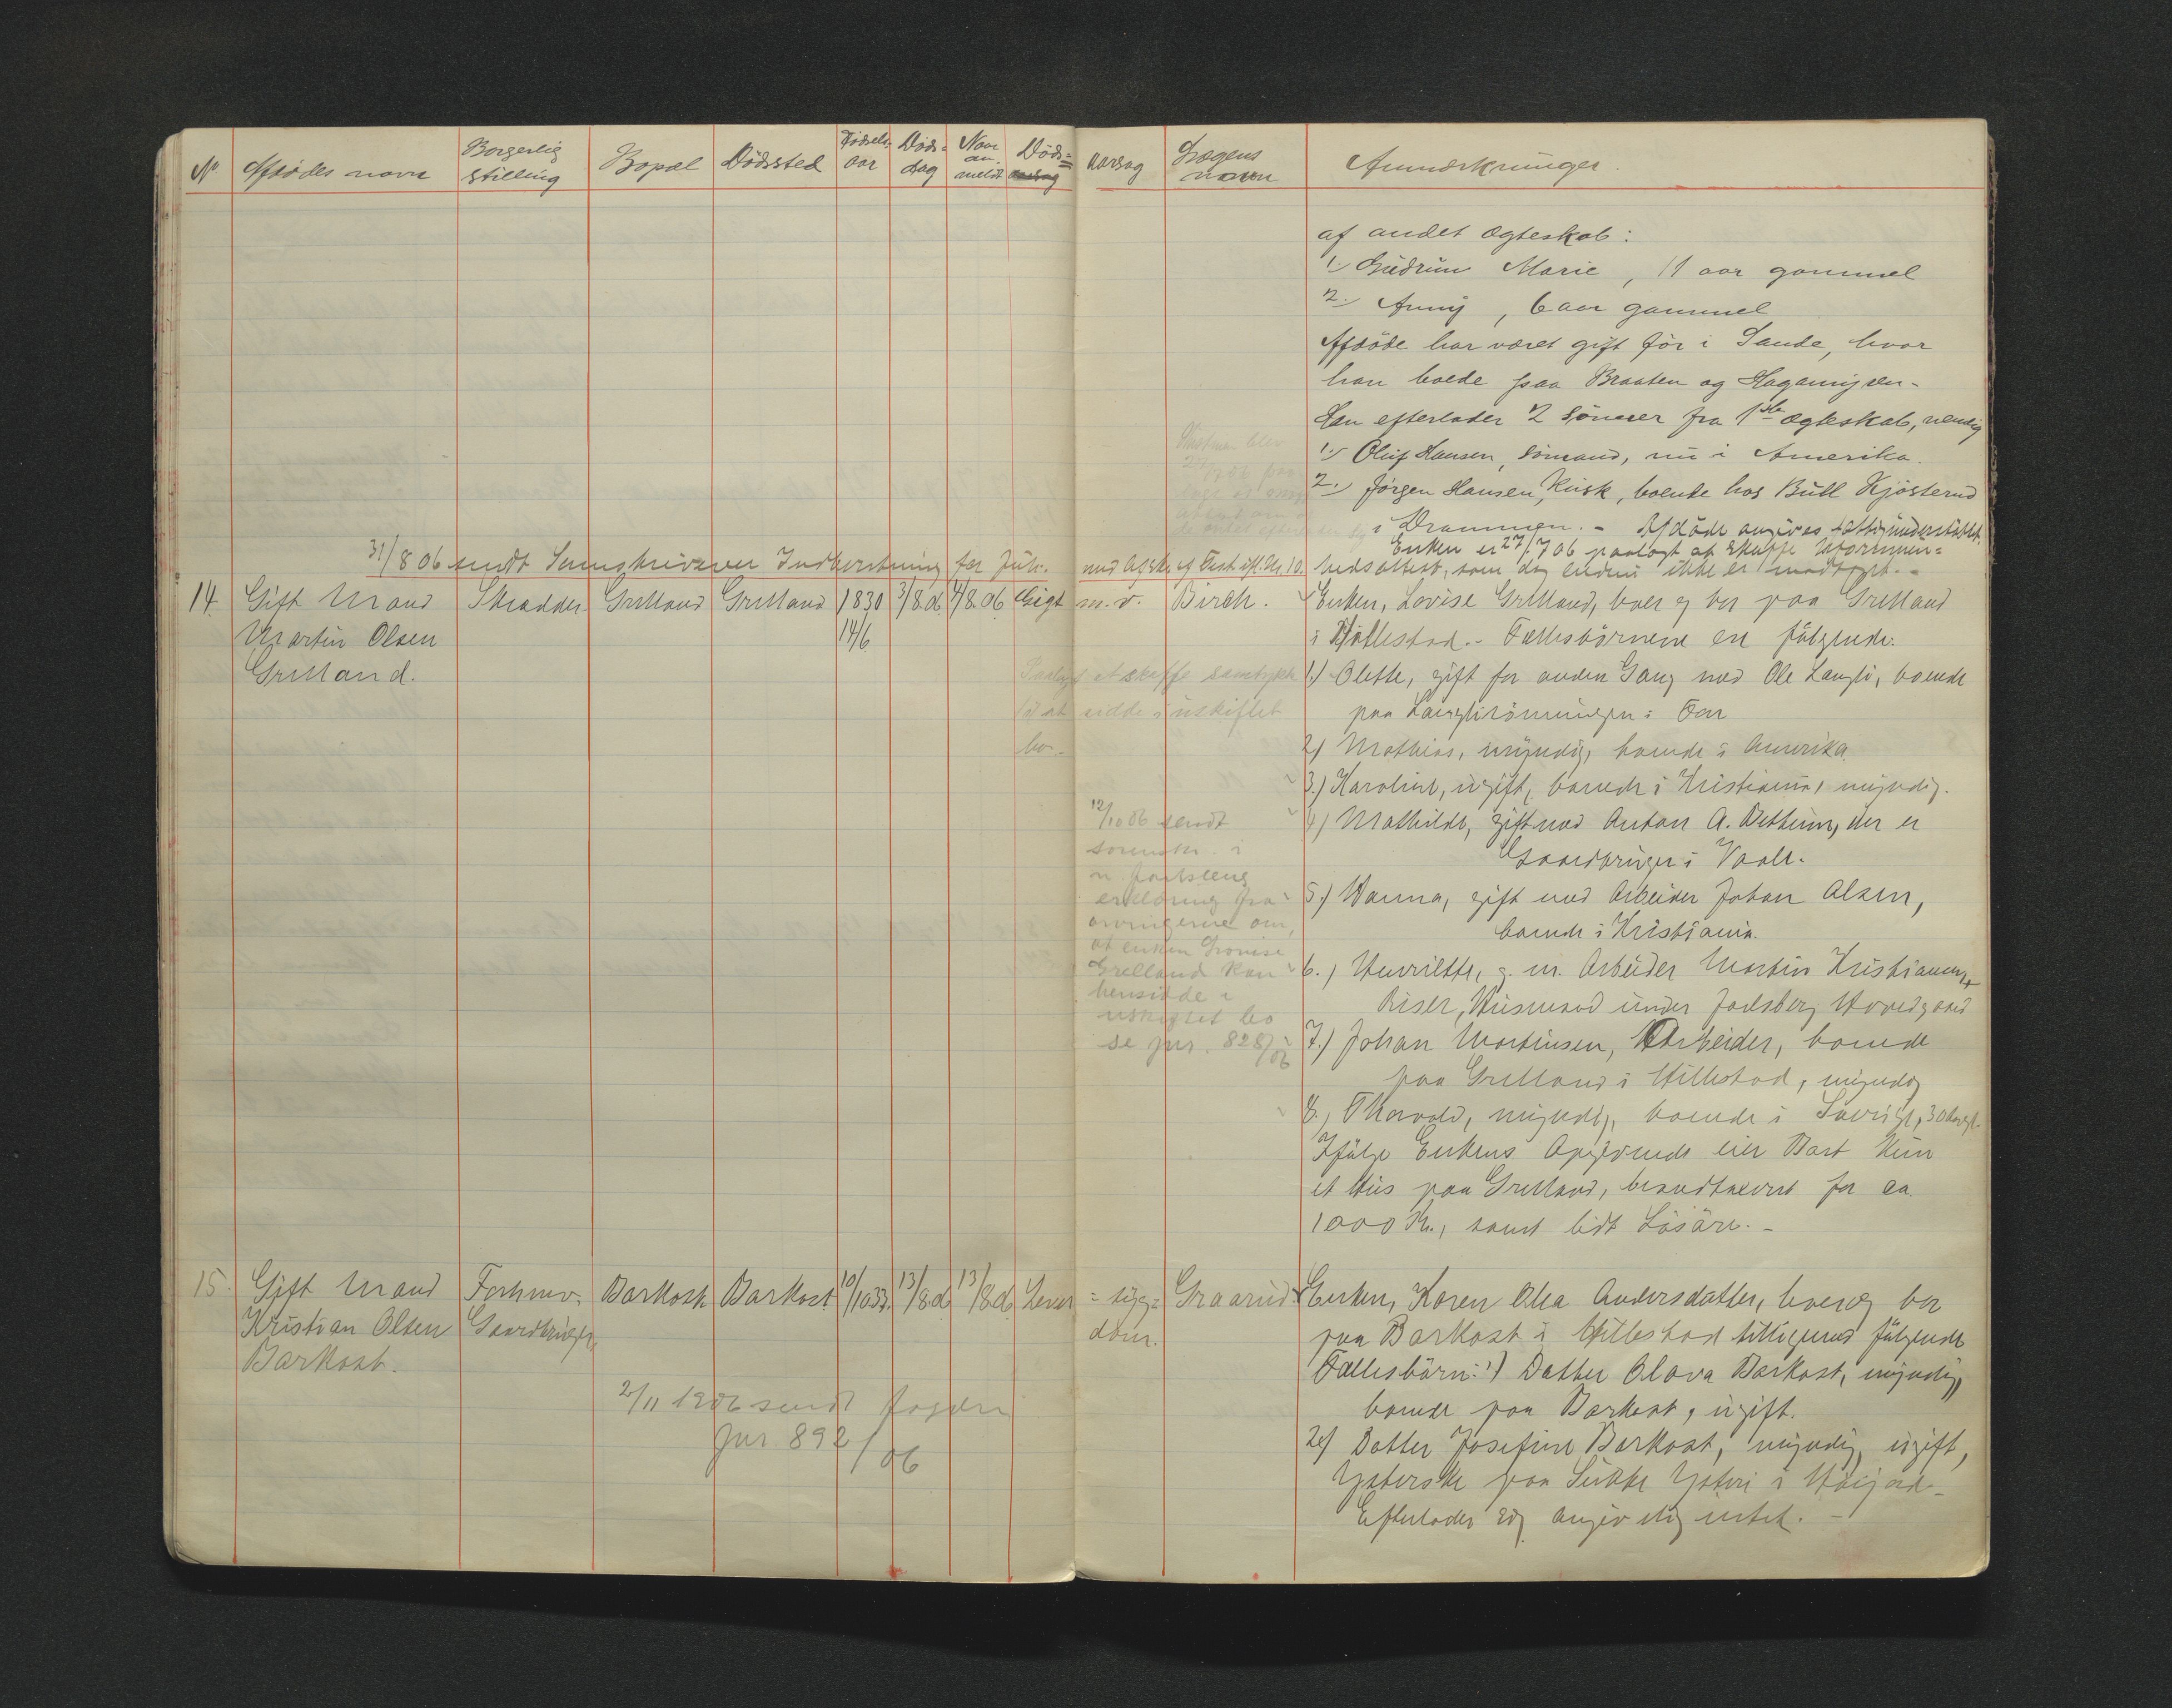 No
Afdødes navn
Borgerlig
stilling
Bopæl
Dödssted
Födsels-
aar
Döds-
dag
Naar
an-
meldt
Döds=
aarsag
Lægens
navn
Anmærkninger.
af andet ægteskab:
1.) Gudrun Marie, 11 aar gammel
2.) Anny, 6 aar gammel
Afdöde har været gift för i Sande, hvor
han boede paa Braaten og
Han efterlader 2 sönner fra 1ste ægteskab, nemlig
1.) Oluf Hansen, sömand, nu i Amerika.
2.) Jörgen Hansen, Kusk, boende hos Bull Kjösterud
i Drammen. - Afdöde angives fattigunderstöttet.
Enken er 27/7 06 paalagt at skaffe uformuen=
31/8 06 sendt Sorenskriveren Indberetning for Juli. med Afskr. af Test ifl. Nr. 10.
hedsattest, som dog endnu ikke er modtaget. -
14.
Gift Mand
Martin Olsen
Grelland.
Skrædder
Grelland
Grelland
1830
14/6
3/8.06
4/8.06
Gigt m. v.
Birch.
Enken, Lovise Grelland, lever og bor paa Grelland
i Hillestad. - Fællesbörnene er fölgende:
1.) Olette, gift for anden Gang med Ole Langli, boende
paa Langlirönningen i Fon
2.) Mathias, myndig, boende i Amerika.
3.) Karoline, ugift, boende i Kristiania, myndig.
4.) Mathilde, gift med Anton A. der er
Gaardbruger i Vaale.
5.) Hanna, gift med Arbeider Johan Olsen,
boende i Kristiania.
6.) Henriette, g. m. Arbeider Martin Kristiansen
Riser, Husmand under Jarlsberg Hovedgaard
7.) Johan Martinsen, Arbeider, boende
paa Grelland i Hillestad, myndig
8.) Thorvald, myndig, boende i Sverige, 30 Aar gl.
Ifölge Enkens Opgivende eier Boet kun
et Hus paa Grelland, brandtaxeret for ca.
1000 Kr., samt lidt Lösöre. -
Paalagt at skaffe samtykke
til at sidde i uskiftet
bo -
12/10 06 sendt
sorenskr. i
erklæring fra
arvingerne om,
at enken Lovise
Grelland kan
hensidde i
uskiftet bo
se jnr. 828/06
15.
Gift Mand
Kristian Olsen
Barkost.
Forhenv.
Gaardbruger
Barkost
Barkost
10/10 33.
13/8.06
13/8.06
Lever = syg=
dom.
Graarud
Enken, Karen Olea Andersdatter, lever og bor
paa Barkost i Hillestad tilligemed fölgende
Fællesbörn: 1) Datter Olava Barkost, myndig,
boende paa Barkost, ugift.
2) Datter Josefine Barkost, myndig, ugift,
Ysterske paa Sukke Ysteri i
Efterlader sig angivelig intet. -
2/11 1906 sendt fogden
Jnr. 892/06